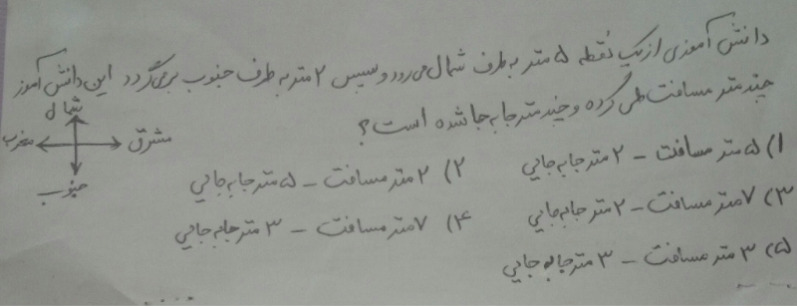 دانش آموزی از یک نقطه ۵ متر به طرف شمال می رود و سپس ۲ متر به طرف جنوب برمی گردد این دانش آموز
چند متر مسافت طی کرده و چند متر جابه جا شده است؟
شمال
مغرب
مشرق
جنوب
۱) ۵ متر مسافت - ۲ متر جابه جایی
۲) ۲ متر مسافت - ۵ متر جابه جایی
۳) ۷ متر مسافت - ۲ متر جابه جایی
۴) ۷ متر مسافت - ۳ متر جابه جایی
۵) ۳ متر مسافت - ۳ متر جابه جایی